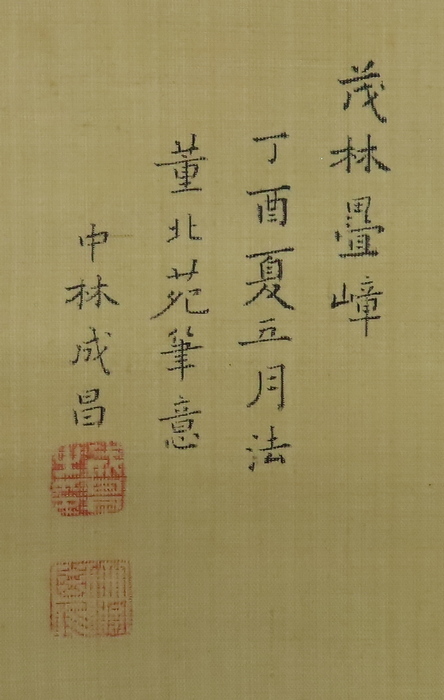 茂林疊嶂
丁酉夏五月法
董北苑筆意
中林成昌